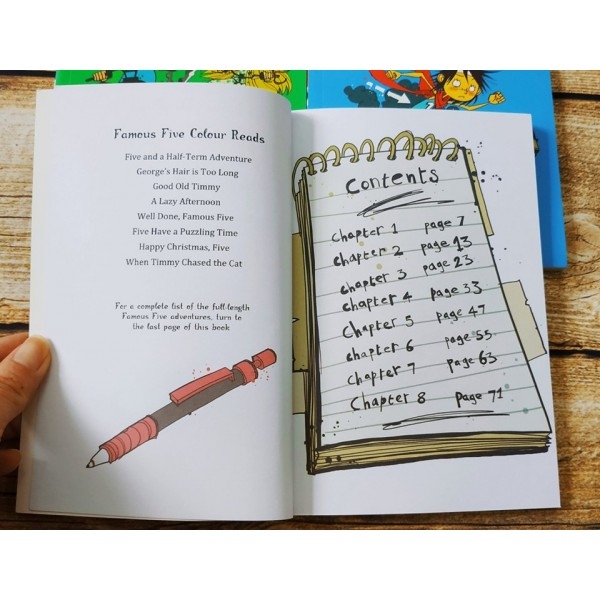 Famous Five Colour Reads
Five and a Half-Term Adventure
George's Hair is Too Long
Good Old Timmy
A Lazy Afternoon
Well Done, Famous Five
Five Have a Puzzling Time
Happy Christmas, Five
When Timmy Chased the Cat
For a complete list of the full-length
Famous Five adventures, turn to
the last page of this book
Contents
Chapter 1 page 7
Chapter 2 page 13
Chapter 3 page 23
Chapter 4 page 33
Chapter 5 page 47
Chapter 6 page 55
Chapter 7 page 63
Chapter 8 page 71